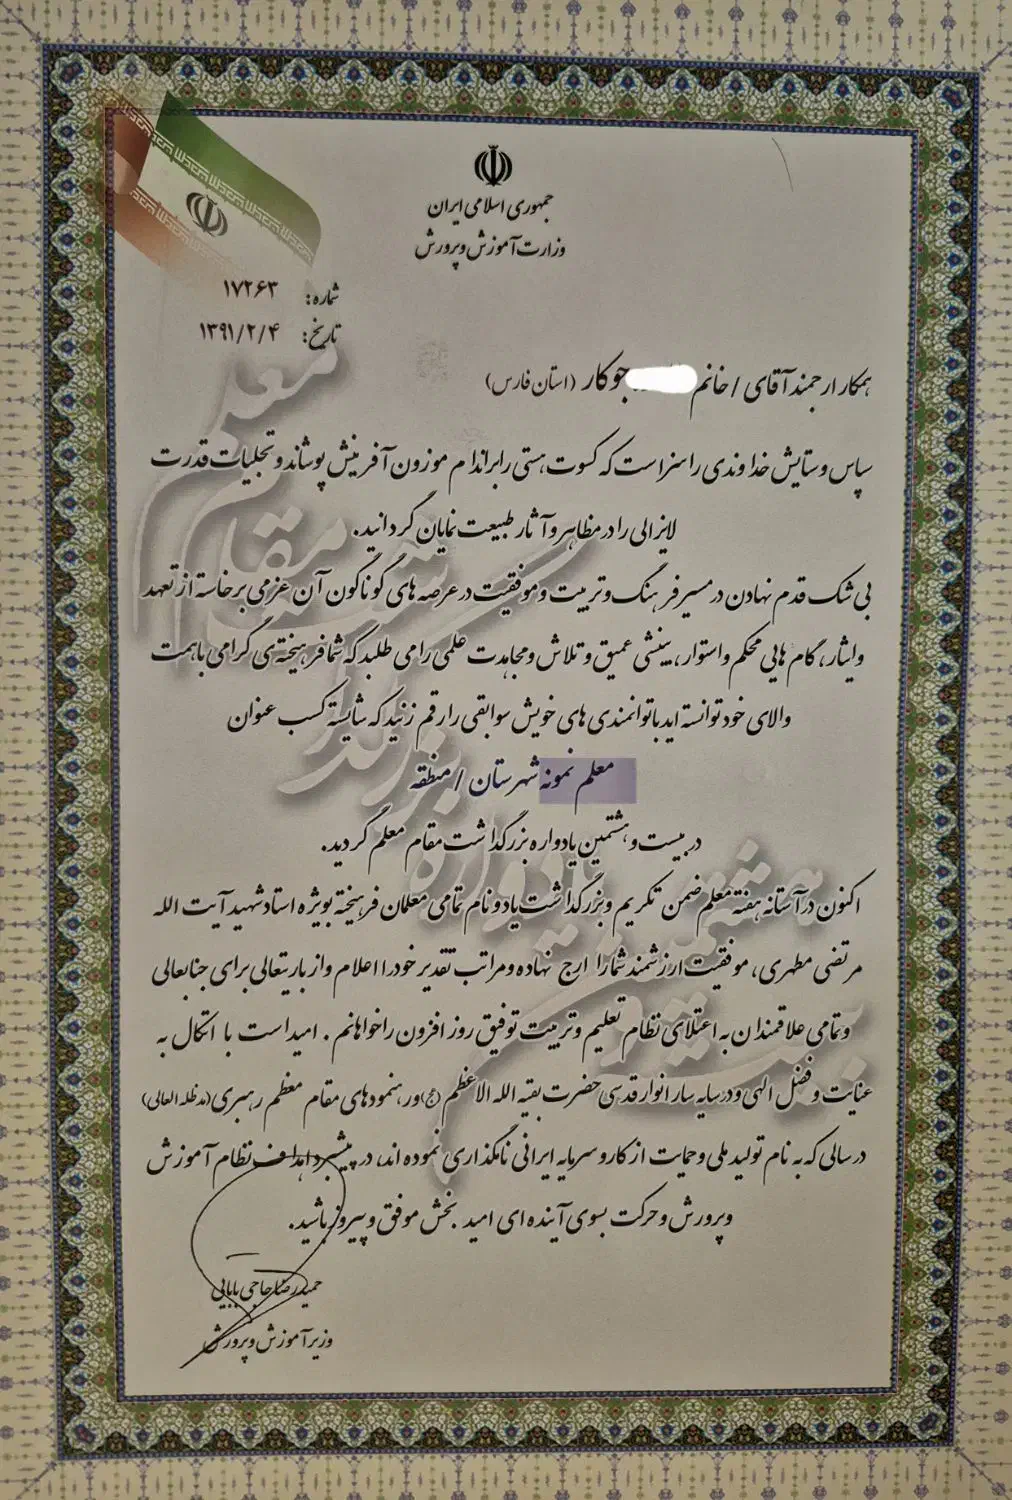 جمهوری اسلامی ایران
وزارت آموزش و پرورش
شماره: ۱۷۲۶۳
تاریخ: ۱۳۹۱/۲/۴
همکار ارجمند آقای / خانم جوکار (استان فارس)
سپاس و ستایش خداوندی را سزاست که کسوت هستی را بر اندام موزون آفرینش پوشاند و تجلیات قدرت
لایزالی را در مظاهر و آثار طبیعت نمایان گردانید.
بی شک قدم نهادن در مسیر فرهنگ و تربیت و موفقیت در عرصه های گوناگون آن عزمی برخاسته از تعهد
و ایثار، گام هایی محکم و استوار، بینشی عمیق و تلاش و مجاهدت علمی را می طلبد که شما فرهیخته ی گرامی با همت
والای خود توانسته اید با توانمندی های خویش سوابقی را رقم زنید که شایسته کسب عنوان
معلم نمونه شهرستان / منطقه
در بیست و هشتمین یادواره بزرگداشت مقام معلم گردید.
اکنون در آستانه هفته معلم ضمن تکریم و بزرگداشت یاد و نام تمامی معلمان فرهیخته بویژه استاد شهید آیت الله
مرتضی مطهری، موفقیت ارزشمند شما را ارج نهاده و مراتب تقدیر خود را اعلام و از باریتعالی برای جنابعالی
و تمامی علاقمندان به اعتلای نظام تعلیم و تربیت توفیق روز افزون را خواهانم. امید است با اتکال به
عنایت و فضل الهی و در سایه سار انوار قدسی حضرت بقیه الله الاعظم (عج) و رهنمودهای مقام معظم رهبری (مدظله العالی)
در سالی که به نام تولید ملی و حمایت از کار و سرمایه ایرانی نامگذاری نموده اند، در پیشبرد اهداف نظام آموزش
و پرورش و حرکت بسوی آینده ای امید بخش موفق و پیروز باشید.
حمیدرضا حاجی بابایی
وزیر آموزش و پرورش